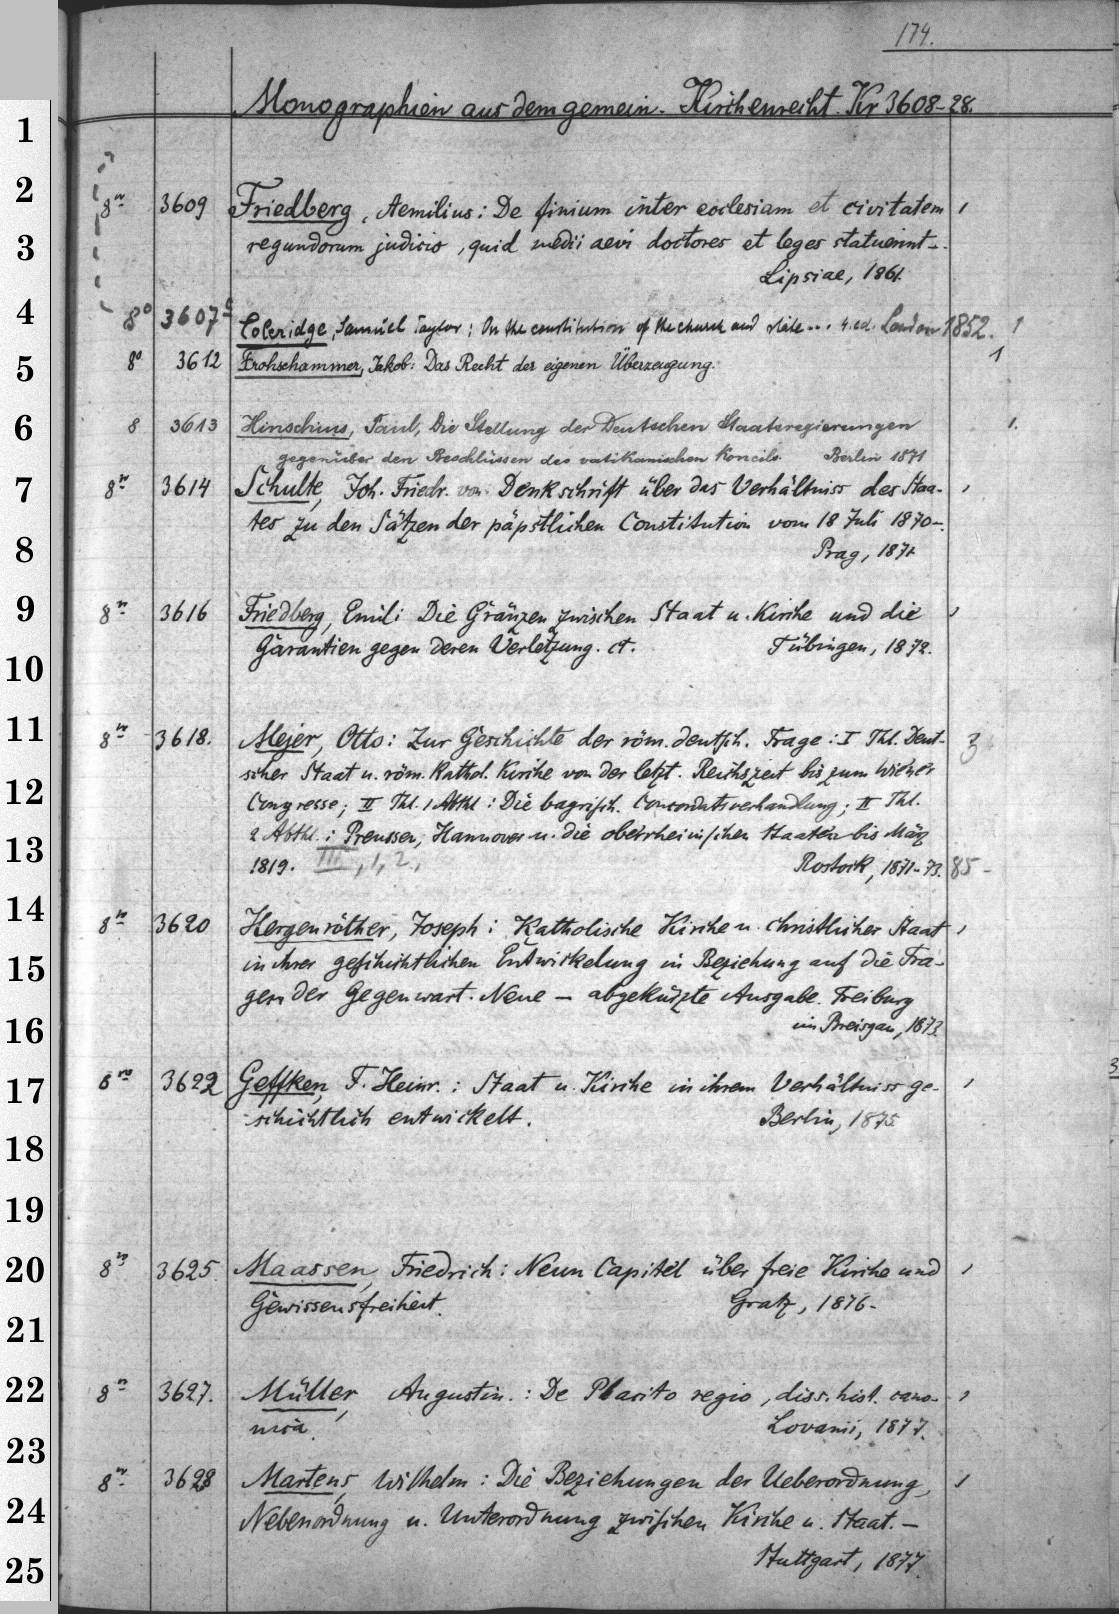 174.
Monographien aus dem gemein. Kirchenrecht. Kr 3608-28.
1
2
8º 3609 Friedberg, Aemilius: De finium inter ecclesiam et civitatem 1
3
regundorum judicio, quid medii aevi doctores et leges statuerint-.
Lipsiae, 1861.
4
8º 3607a Coleridge, Samuel Taylor: On the constitution of the church and state... 4. ed. London 1852. 1
5
8º 3612 Frohschammer, Jakob: Das Recht der eigenen Überzeugung. 1
6
8 3613 Hinschius, Paul, Die Stellung der Deutschen Staatsregierungen 1.
gegenüber den Beschlüssen des vatikanischen Koncils. Berlin 1871
7
8º 3614 Schulte, Joh. Friedr. von Denkschrift über das Verhältniss des Staa- 1
tes zu den Sätzen der päpstlichen Constitution vom 18 Juli 1870-.
8
Prag, 1871
9
8º 3616 Friedberg, Emil: Die Gränzen zwischen Staat u. Kirche und die 1
10
Garantien gegen deren Verletzung. ct. Tübingen, 1872.
11
8º 3618. Mejer, Otto: Zur Geschichte der röm. deutsch. Frage: I Thl. Deut- 3
scher Staat u. röm. kathol. Kirche von der letzt. Reichszeit bis zum Wiener
12
Congresse; II Thl. 1 Abthl: Die bayrisch. Concordatsverhandlung; II Thl.
2 Abthl.: Preussen, Hannover u. die oberrheinischen Staaten bis März
13
1819. III, 1, 2., Rostock, 1871-73. 85-
14
8º 3620 Hergenröther, Joseph: Katholische Kirche u. christlicher Staat 1
15
in ihrer geschichtlichen Entwickelung in Beziehung auf die Fra-
gen der Gegenwart. Neue - abgekürzte Ausgabe. Freiburg
16
im Breisgau, 1873.
3
17
8º 3622 Geffken, F. Heinr.: Staat u. Kirche in ihrem Verhältniss ge- 1
schichtlich entwickelt. Berlin, 1875
18
19
20
8º 3625. Maassen, Friedrich: Neun Capitel über freie Kirche und 1
Gewissensfreiheit. Gratz, 1876-
21
22
8º 3627. Müller, Augustin.: De Placito regio, diss. hist. cano- 1
nica. Lovanii, 1877.
23
8º 3628 Martens, Wilhelm: Die Beziehungen der Ueberordnung, 1
24
Nebenordnung u. Unterordnung zwischen Kirche u. Staat. -
25
Stuttgart, 1877.